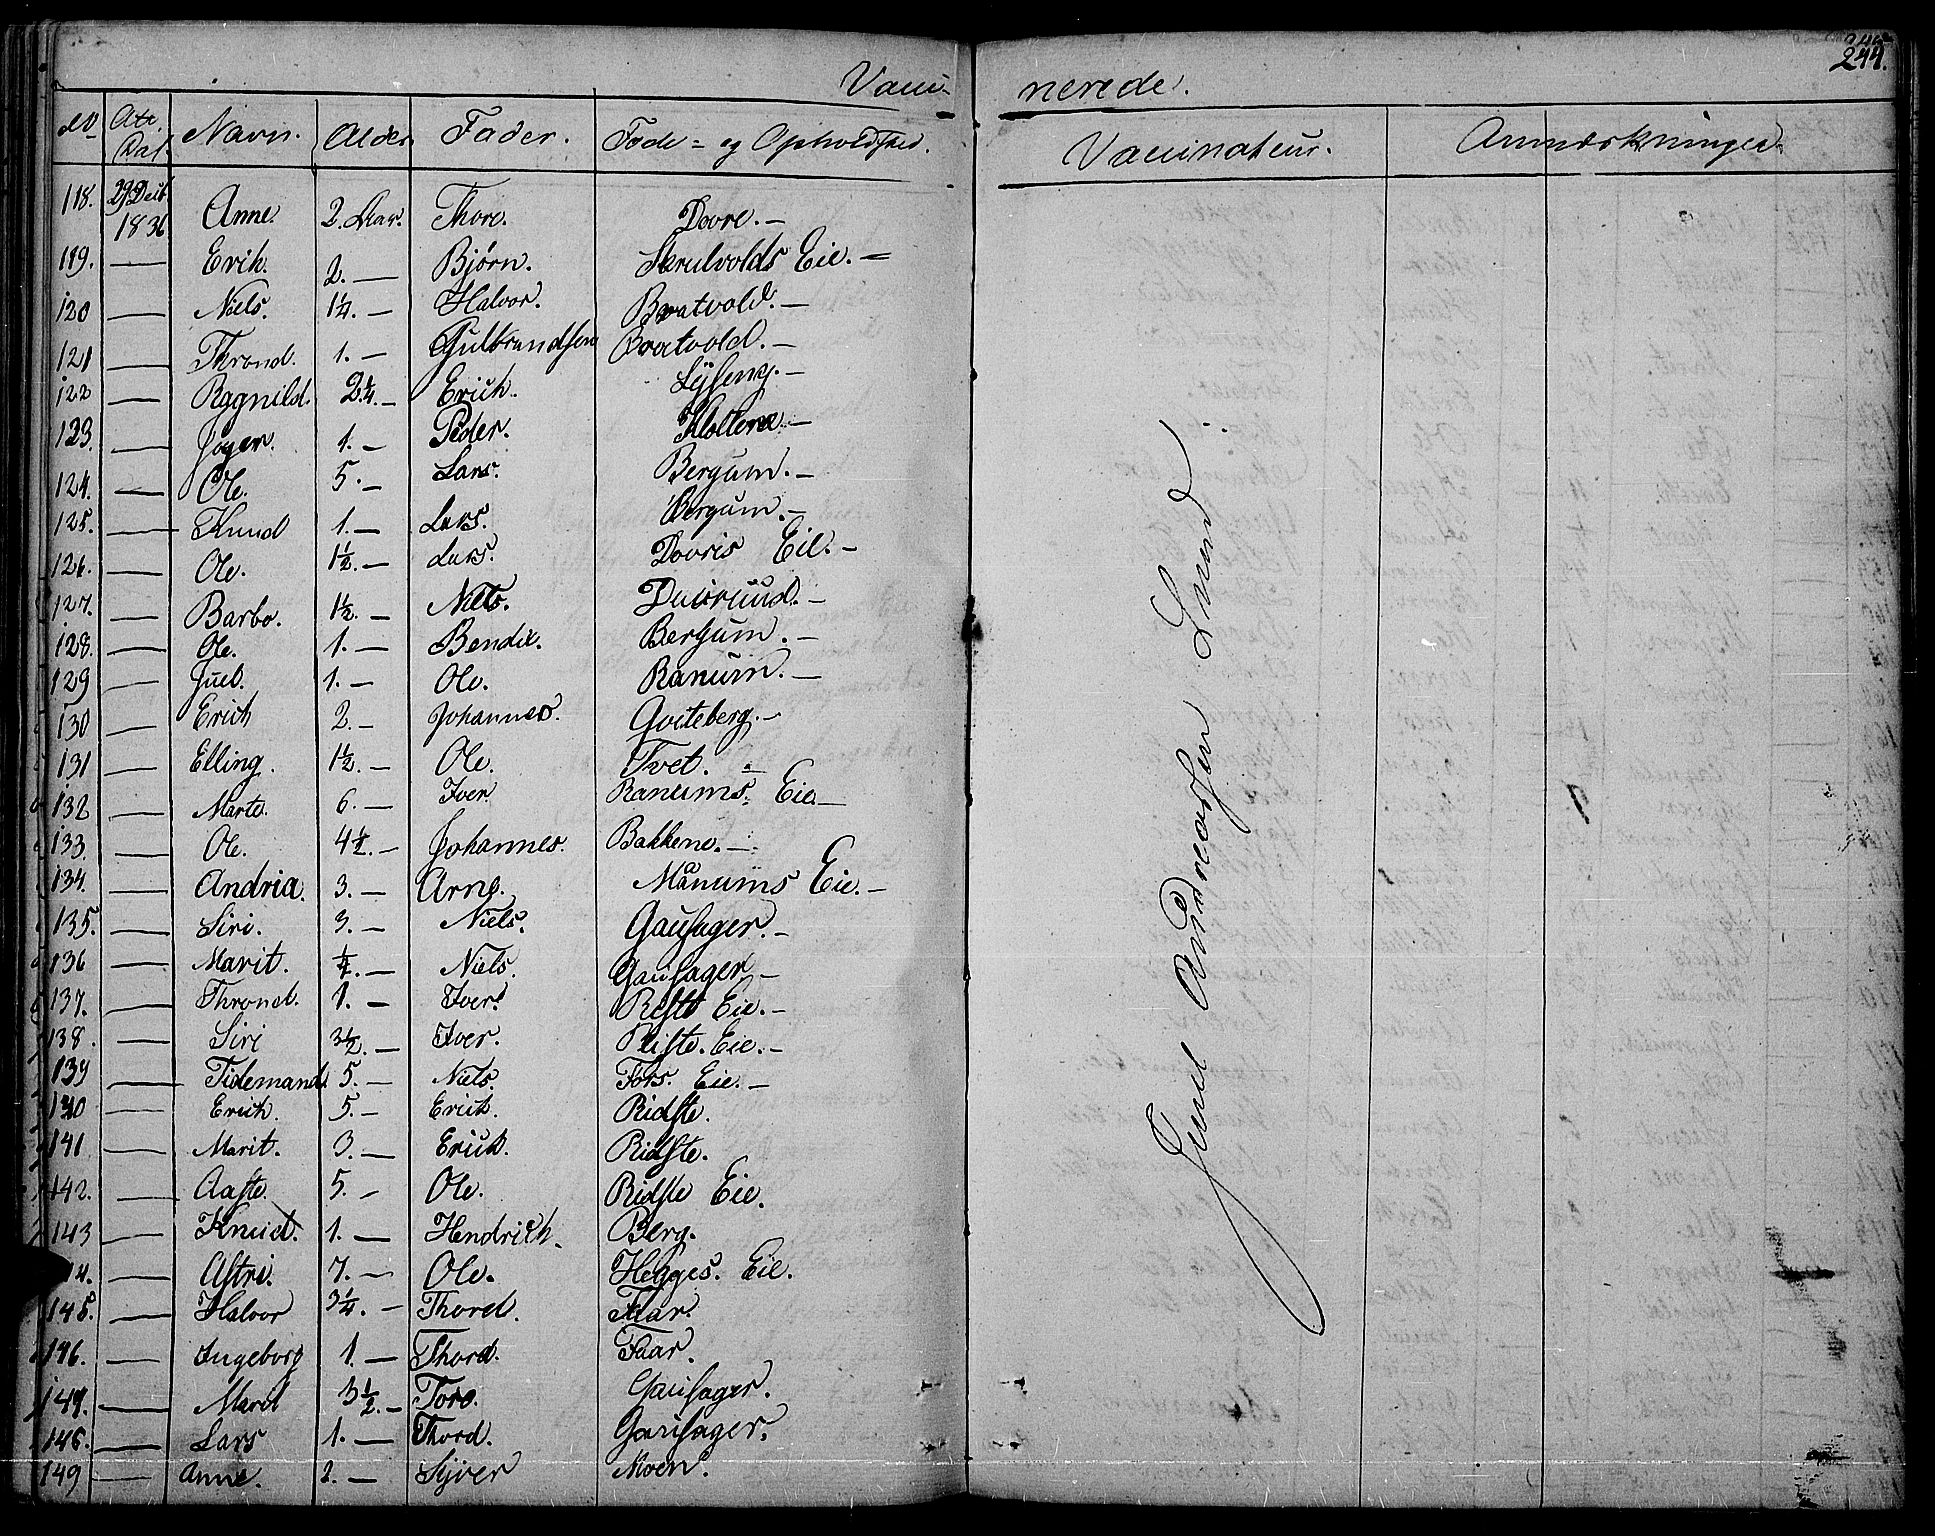 244.
Vacci- nerede.
No Att. Dat. Navn. Alder Fader. Føde- og Opholdsted. Vaccinateur. Anmærkninger.
118. 29 Decb 1836 Anne. 2. Aar. Thore. Dovre. -
119. — Erik. 2. — Bjørn. Skrulvolds Eie. -
120 — Niels. 1¼. — Halvor. Bratvold. -
121 — Thrond. 1. — Gulbrandsen Bratvold. -
122 — Ragnild. 2¼. — Erich.
123. — 1. — Peder.
124. — Ole. 5. — Lars. Bergum. -
125. — Knud 1. — Lars. Bergum. -
126. — Ole. 1½. — Lars. Dovris Eie. -
127. — Barbo. 1½. — Niels.
128. — Ole. 1. — Bendix. Bergum. -
129 — Juel. 1. — Ole. Ranum. -
130 — Erich 2. — Johannes. Goiteberg. -
131 — Elling. 1½. — Ole. Tvet. -
132 — Marte. 6. — Iver. Ranums. Eie. -
133. — Ole. 4½. — Johannes. Bakkene. -
134. — Andria. 3. — Arne. Manums Eie. -
135. — Siri. 3. — Niels. Gausager. -
136 — Marit. ¼. — Niels. Gausager -
137. — Thrond. 1. — Iver. Riste Eie. -
138. — Siri 3½. — Iver. Riste. Eie. -
139 — Tidemand. 5. — Niels. Fors. Eie. -
140 — Erich. 5. — Erich. Ridste.
141 — Marit. 3. — Erich. Ridste.
142. — Aaste. 5. — Ole. Ridste Eie.
143 — Knud. 1. — Hendrich. Berg.
— Astri. 7. — Ole. Hegges. Eie.
145. — Halvor 3¼. — Thord. Faar.
146. — Ingeborg 1. — Thord. Faar.
147. — Marit 3½. — Tore. Gausager.
148. — Lars 1. — Thord. Gausager.
149 — Anne. 2. — Syver Moen.
Juul Andreassen Lund